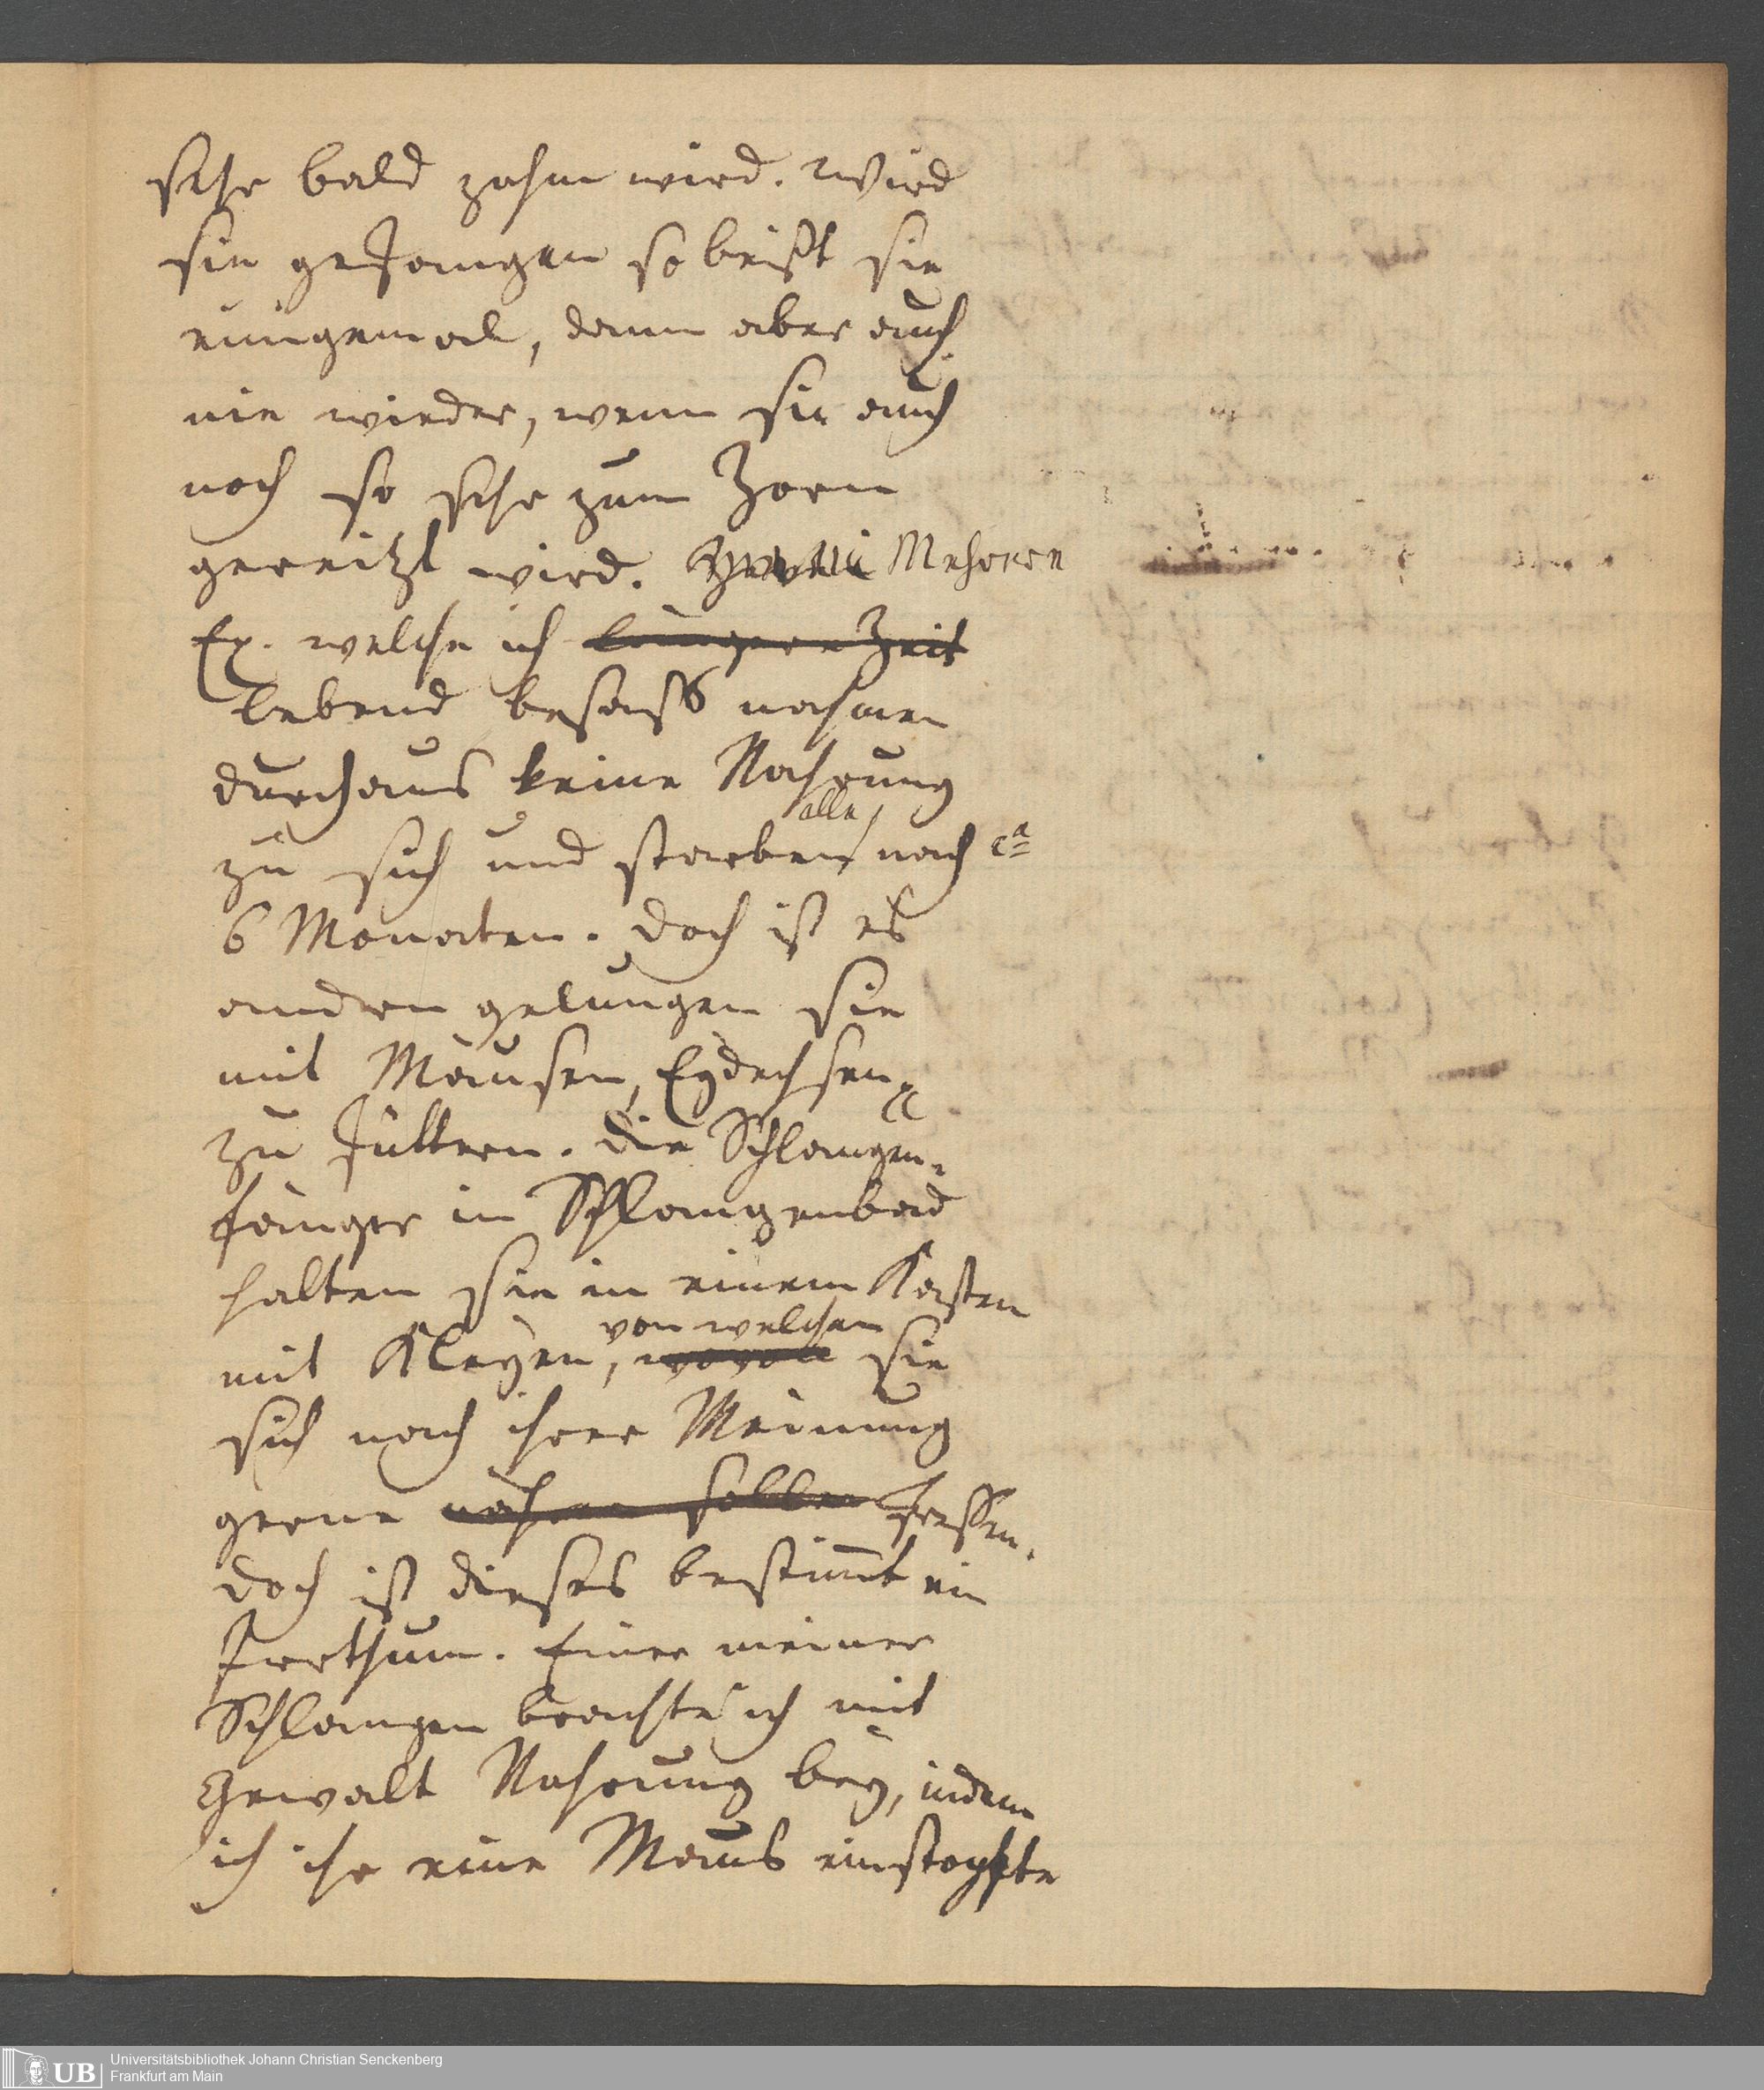 sehr bald zahm wird. Wird
sie gefangen so beißt sie
einigemal, dann aber auch
nie wieder, wenn sie auch
noch so sehr zum Zorn
gereitzt wird. Mehrere
Ex. welche ich längere Zeit
lebend besass nahmen
durchaus keine Nahrung
zu sich und starben alle nach ca
6 Monaten. Doch ist es
andern gelungen sie
mit Mäusen, Eydechsen
zu füttern. Die Schlangen-
fänger in Schlangenbad
halten sie in einem Kasten
mit Kleyen, wovon von welchen sie
sich nach ihrer Meinung
gerne nähren sollen fressen.
Doch ist dieses bestimt ein
Irrthum. Einer meiner
Schlangen brachte ich mit
Gewalt Nahrung bey, indem
ich ihr eine Maus einstopfte
UB
Universitätsbibliothek Johann Christian Senckenberg
Frankfurt am Main